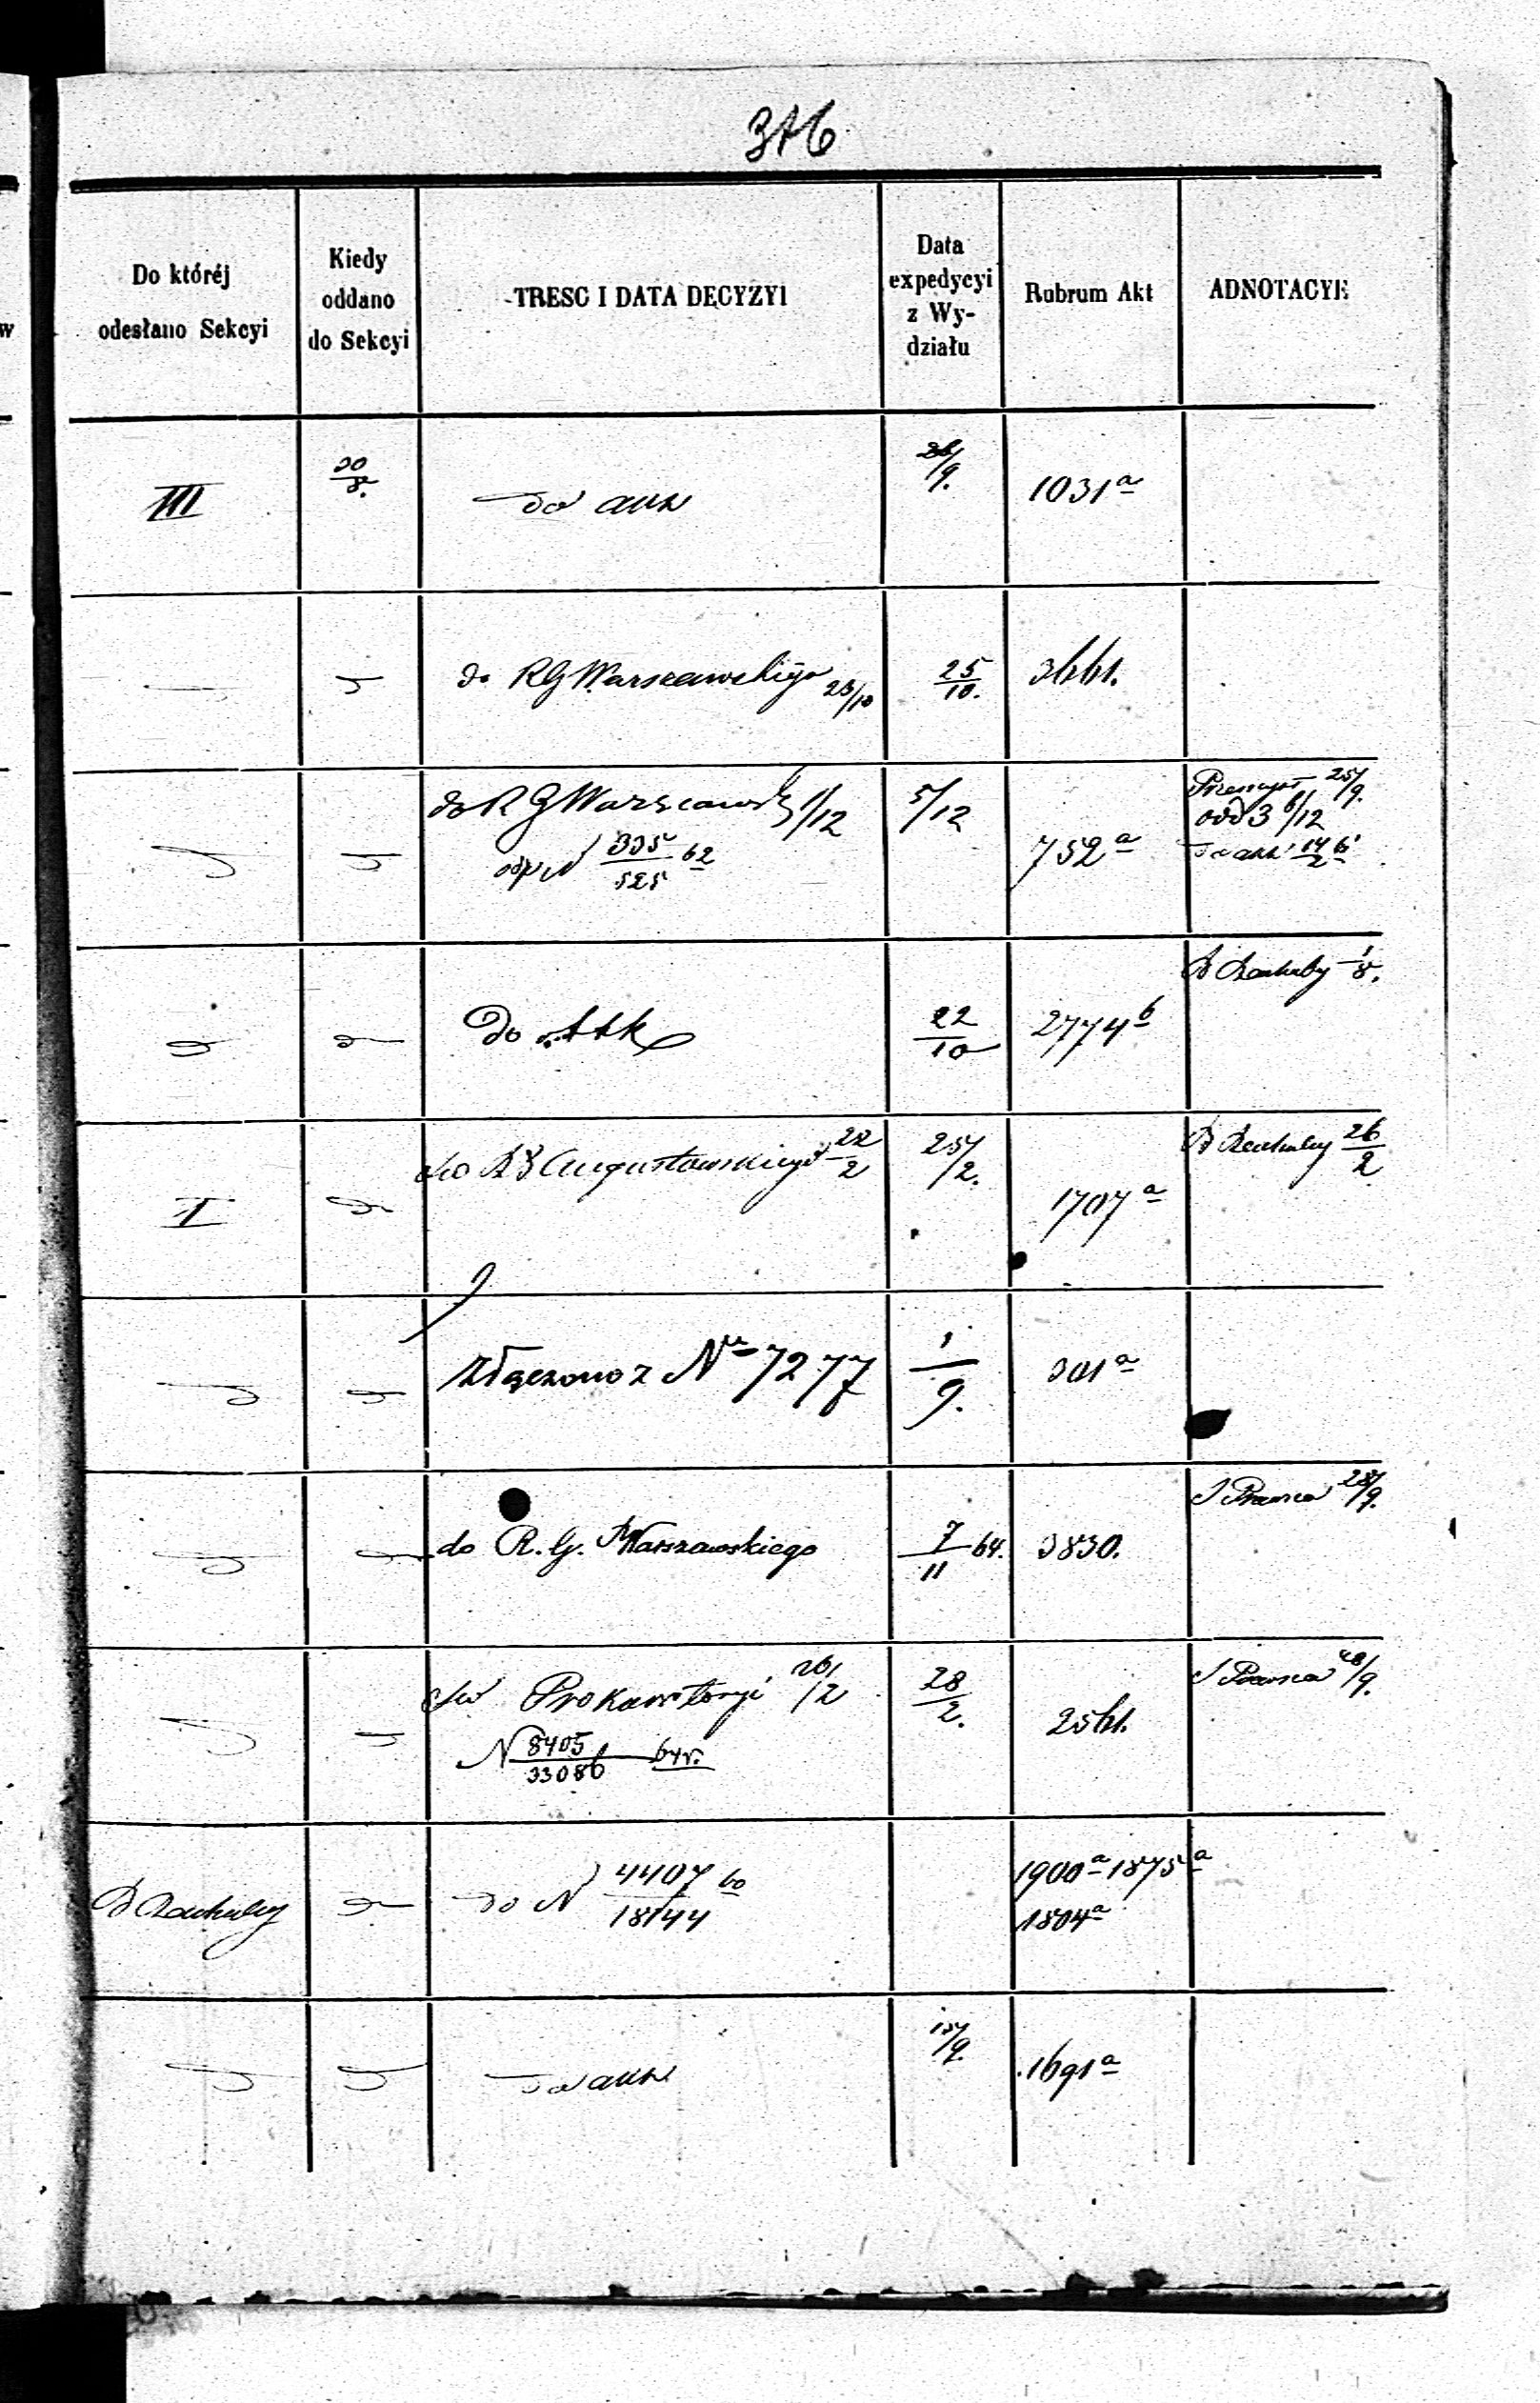 376
Do któréj
odesłano Sekcyi
Kiedy
oddano
do Sekcyi
TRESC I DATA DECYZYI
Data
expedycyi
z Wy-
działu
Rubrum Akt
ADNOTACYE
III
30/8.
do akt
26/9.
1031 a
do RG Warszawskiego 23/10
25/10.
3661.
do RG Warszawsk 1/12
odp N 335/525 62
5/12
752 a
25/9.
odd 3 6/12
do akt 14/2
Do Akt
22/10
2774 b
B Rachuby 1/8.
I
do RG Augustowskiego 22/2
25/2.
1707 a
B Rachuby 26/2
Złączono z Nr 7277
1/9.
301 a
do R. G. Warszawskiego
7/11 64.
3830.
S Prawna 28/9.
do Prokuratoryi 26/2
N 8405/33086 64 r.
28/2.
2561.
S Prawna 28/9.
B Rachuby
do N 4407/18144 60
1900 a 1875 a
1804 a
do akt
15/9.
1691 a